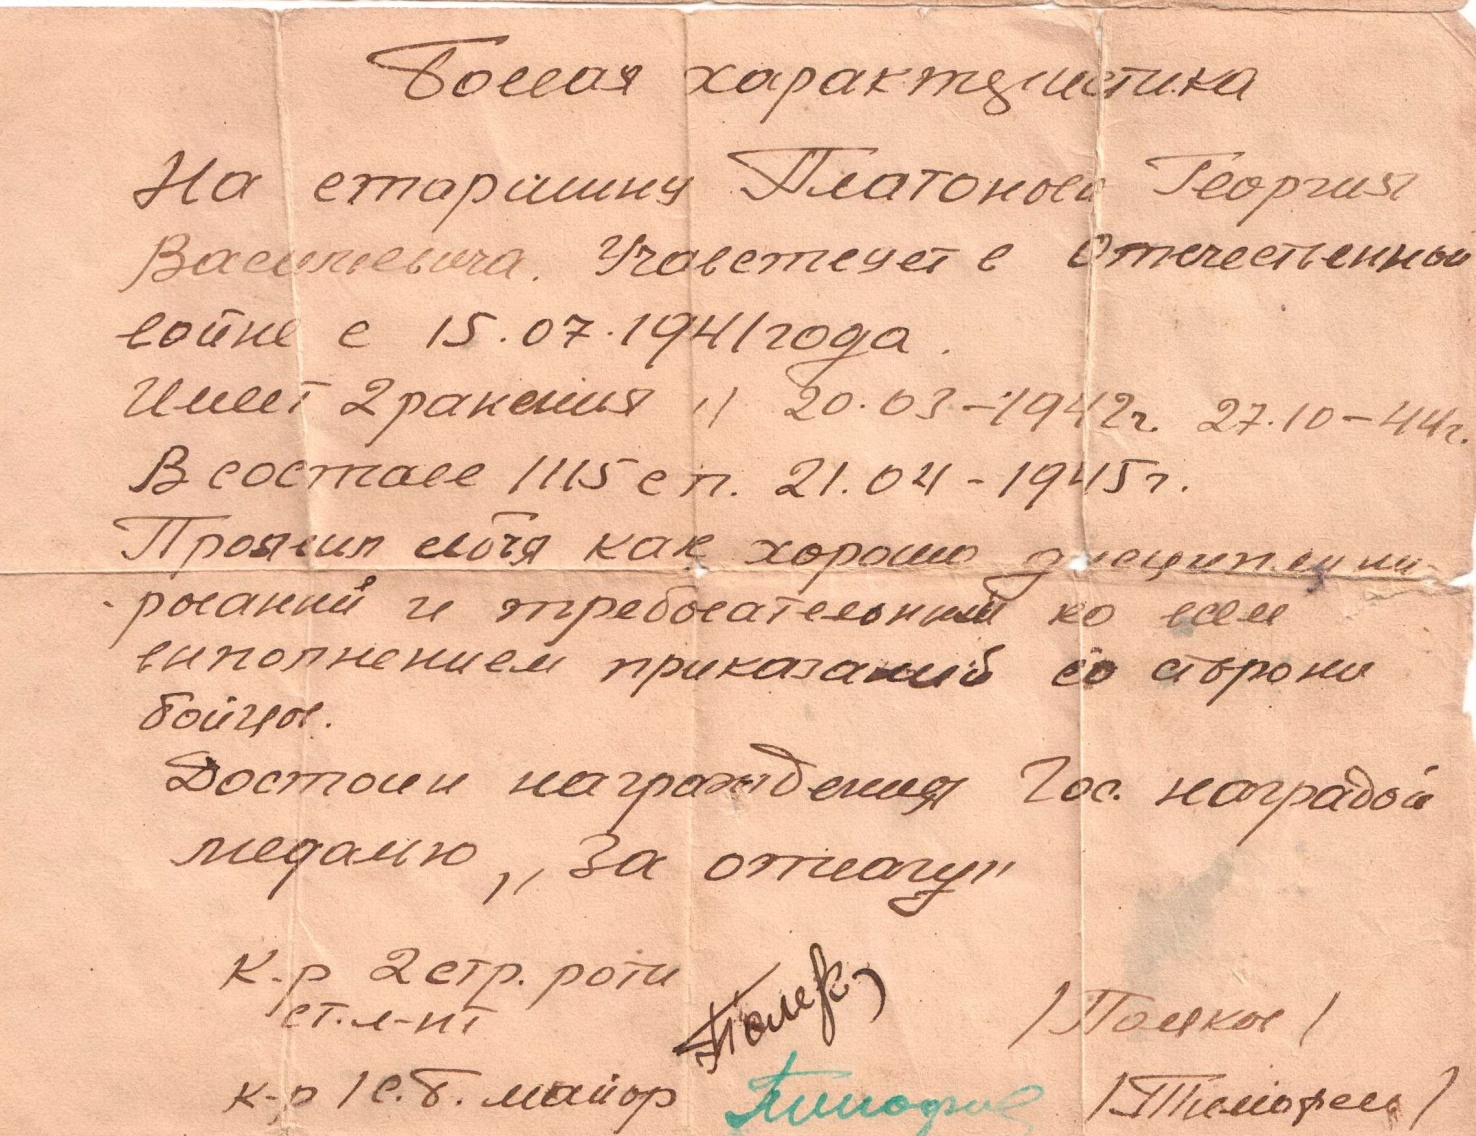 Боевая характеристика
На старшину Платонова Георгия
Васильевича. Участвует в Отечественной
войне с 15.07.1941 года.
Имеет 2 ранения 20.03-1942г. 27.10-44г.
В составе 1115 сп. 21.04-1945г.
Проявил себя как хорошо дисциплини-
рований и требовательний ко всем
виполнением приказаний со сторони
бойцов.
Достоин награждения Гос. наградой
медалю „За отвагу"
К-р 2 стр. роти
ст. л-нт /
к-р 1 с.б. майор Тимофеев /Тимофеев/